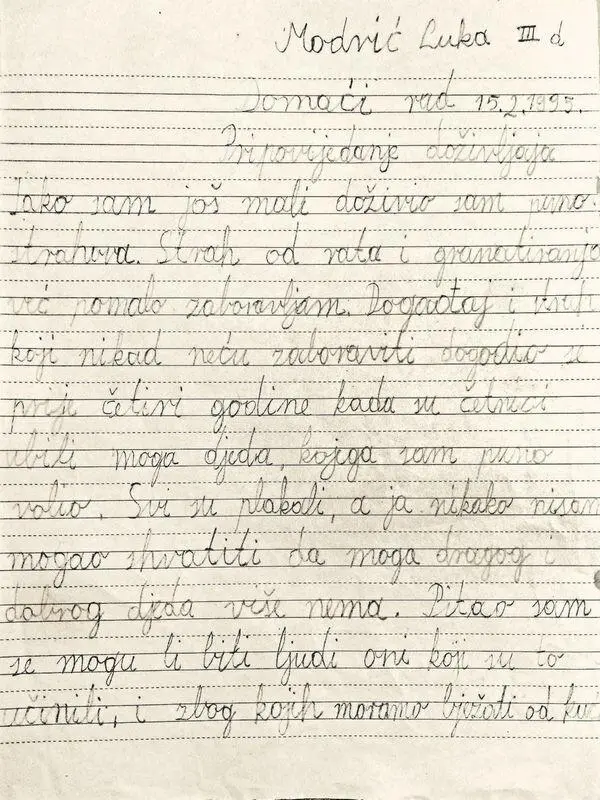 Modrić Luka III d
Domaći rad 15.2.1995.
Pripovijedanje doživljaja
Iako sam još mali doživio sam puno
strahova. Strah od rata i granatiranja
već pomalo zaboravljam. Događaj i strah
koji nikad neću zaboraviti dogodio se
prije četiri godine kada su četnici
ubili moga djeda, kojega sam puno
volio. Svi su plakali, a ja nikako nisam
mogao shvatiti da moga dragog i
dobrog djeda više nema. Pitao sam
se mogu li biti ljudi oni koji su to
učinili, i zbog kojih moramo bježati od kuće